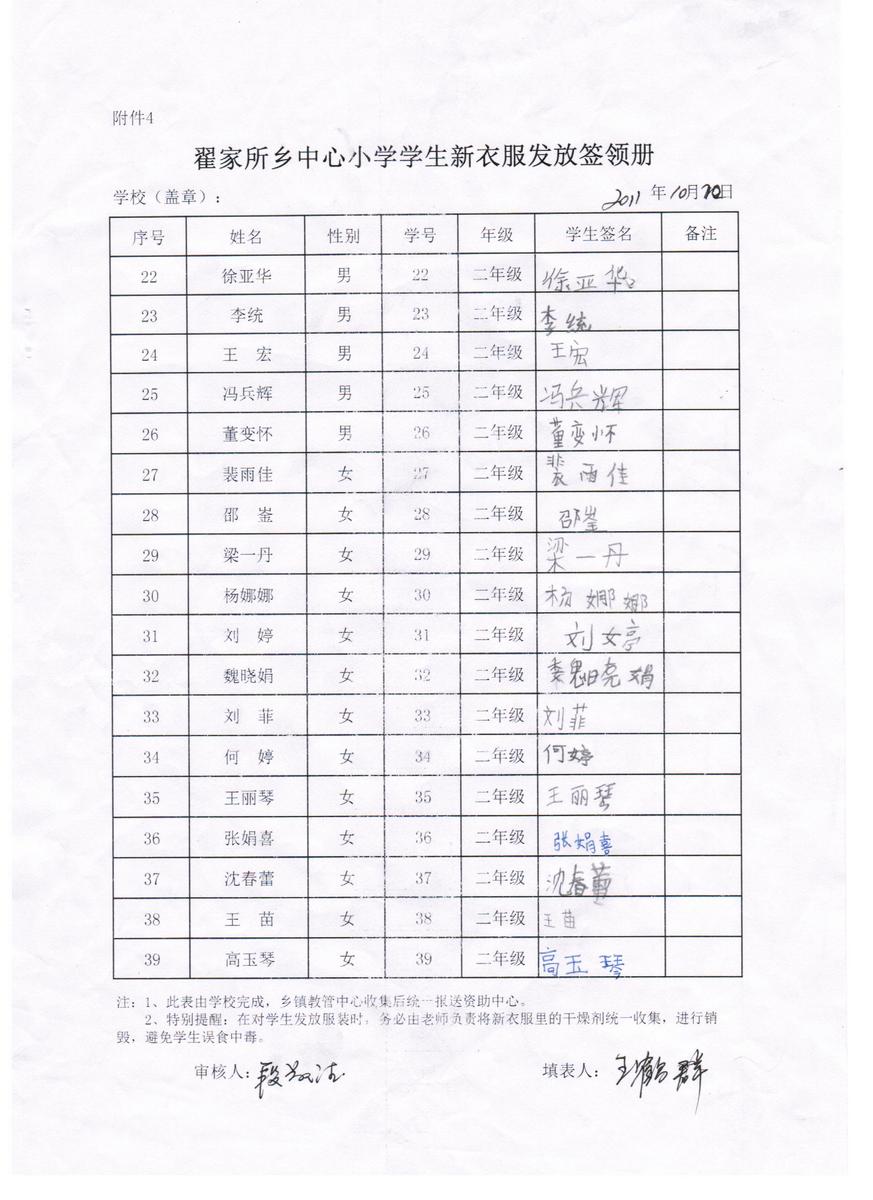 附件4
翟家所乡中心小学学生新衣服发放签领册
学校（盖章）： 2011 年 10月 日
序号 姓名 性别 学号 年级 学生签名 备注
22 徐亚华 男 22 二年级 徐亚华
23 李统 男 23 二年级 李统
24 王 宏 男 24 二年级 王宏
25 冯兵辉 男 25 二年级 冯兵辉
26 董变怀 男 26 二年级 董变怀
27 裴雨佳 女 27 二年级 裴雨佳
28 邵 崟 女 28 二年级 邵崟
29 梁一丹 女 29 二年级 梁一丹
30 杨娜娜 女 30 二年级 杨娜娜
31 刘 婷 女 31 二年级 刘婷
32 魏晓娟 女 32 二年级 魏晓娟
33 刘 菲 女 33 二年级 刘菲
34 何 婷 女 34 二年级 何婷
35 王丽琴 女 35 二年级 王丽琴
36 张娟喜 女 36 二年级 张娟喜
37 沈春蕾 女 37 二年级 沈春蕾
38 王 苗 女 38 二年级 王苗
39 高玉琴 女 39 二年级 高玉琴
注：1、此表由学校完成，乡镇教管中心收集后统一报送资助中心。
2、特别提醒：在对学生发放服装时，务必由老师负责将新衣服里的干燥剂统一收集，进行销
毁，避免学生误食中毒。
审核人： 填表人：王鹤群